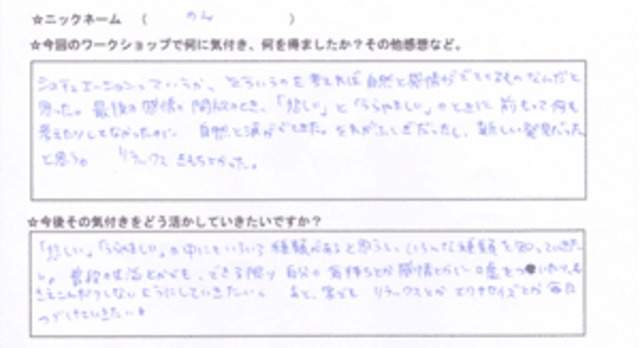 ☆ニックネーム （ のん ）
☆今回のワークショップで何に気付き、何を得ましたか？その他感想など。
シュチュエーションっていうか、そういうのを考えれば自然と感情がでてくるものなんだと
思った。最後の感情の開放のとき、「悲しい」と「うらやましい」のときに前もって何も
考えたりしてなかったのに 自然と涙がでてきた。それがふしぎだったし、新しい発見だった
と思う。 リラックス きもちよかった。
☆今後その気付きをどう活かしていきたいですか？
「悲しい」「うらやましい」の中にもいろいろ種類があると思うし、いろんな種類を知っていきた
い。普段の生活とかでも、できる限り自分の気持ちとか感情とかに
しないようにしていきたい。 あと、家でも リラックスとか エクササイズとか 毎日
つづけていきたい